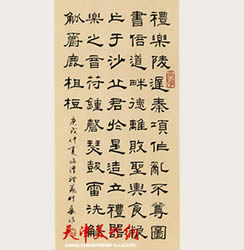 禮樂陵遲秦項作亂不尊圖
書倍道畔德離敗聖輿食糧
亡于沙丘君於是造立禮器
樂之音符鍾磬瑟鼓雷洗觴
觚爵鹿柤梪
庚戌仲夏
天津美术网